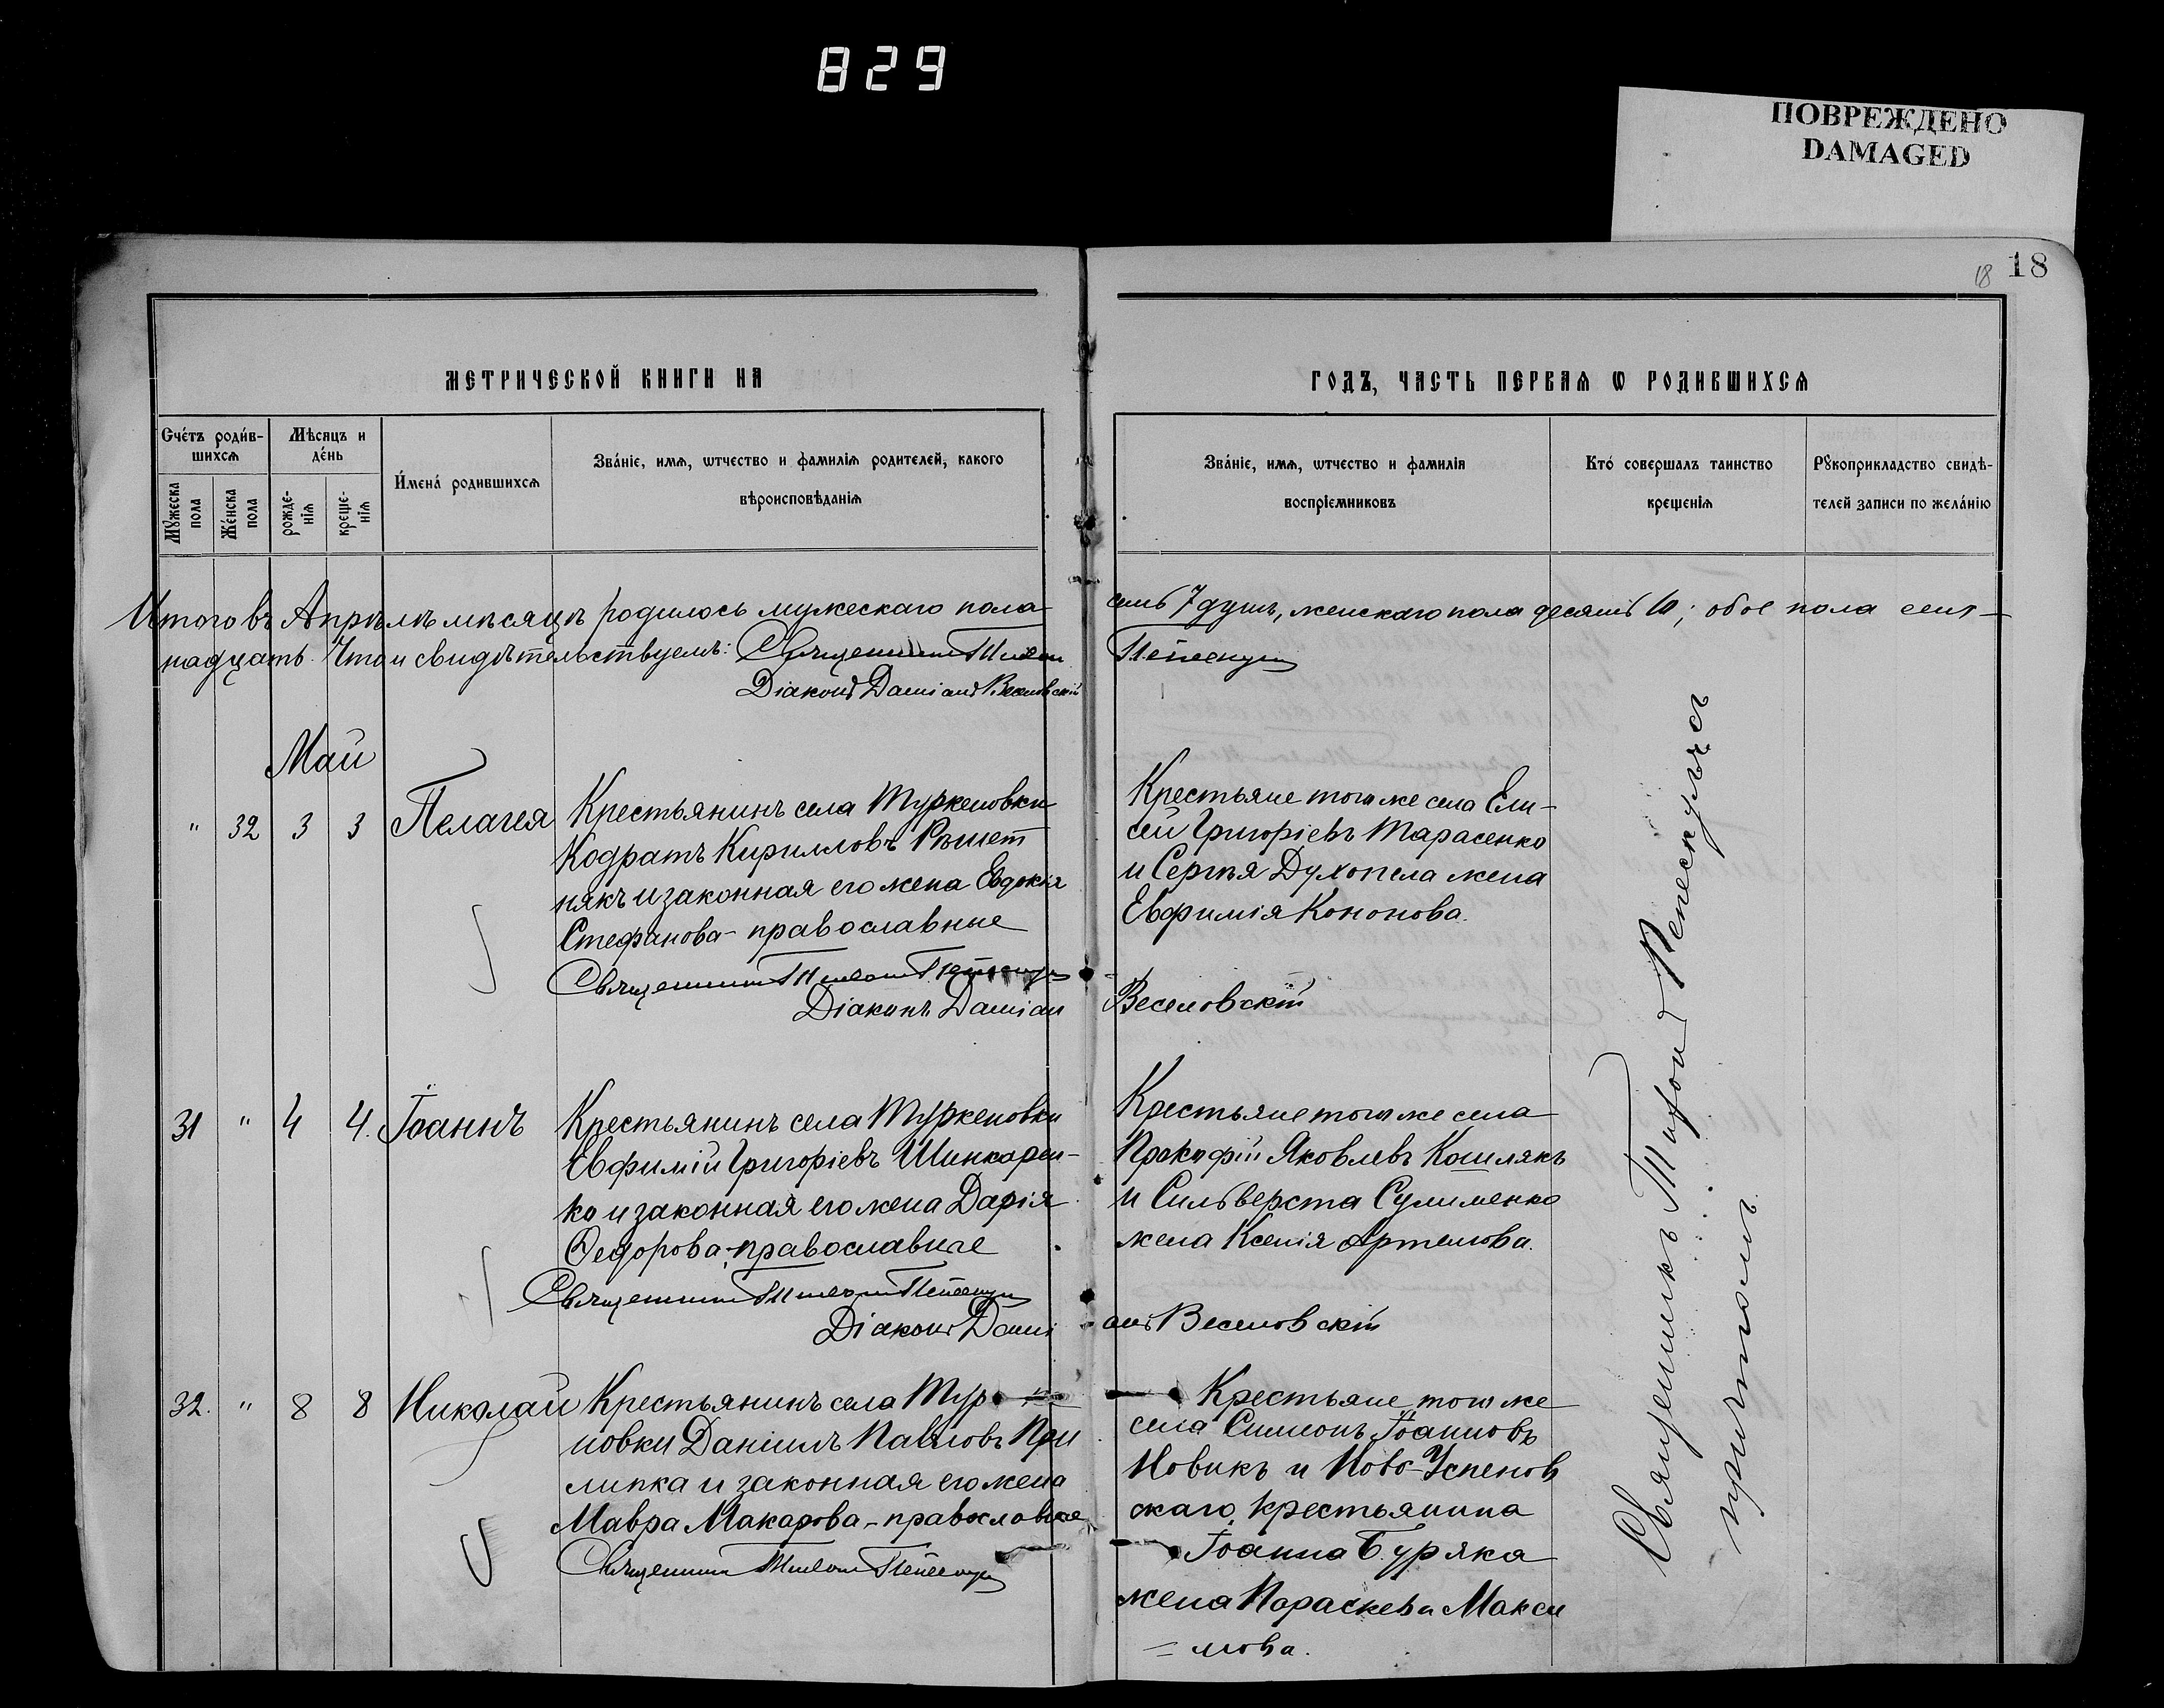 829
ПОВРЕЖДЕНО
DAMAGED
18
18
МЕТРИЧЕСКОЙ КНИГИ НА
ГОДЪ, ЧАСТЬ ПЕРВАѦ Ѡ РОДИВШИХСѦ
Счётъ родив-
шихсѧ
Мѣсяцъ и
дéнь
Мꙋжеска
пола
Жéнска
пола
рожде-
нїѧ
креще-
нїѧ
И́мена́ родившихсѧ
Зва́нїе, имѧ, ѡтчество и фамилїѧ родителей, какого
вѣроисповѣданїѧ
Зва́нїе, имѧ, ѡтчество и фамилїѧ
воспрїемниковъ
Кто́ совершалъ таинство
крещенїѧ
Рꙋкоприкладство свидѣ-
телей записи по жела́нїю
Итого въ Апрѣлѣ мѣсяцѣ родилось мужескаго пола
семь 7 душъ, женскаго пола десять 10; обое пола сем-
надцать. Что и свидѣтельствуемъ: Священникъ Тихон
Пепескулъ
Діаконъ Даміанъ Веселовскій
Май
" 32 3 3 Пелагея
Крестьянинъ села Туркеновки
Кодратъ Кирилловъ Рѣшет
някъ и законная его жена Евдокія
Стефанова - православные
Священникъ Тихонъ Пепескулъ
Діаконъ Даміан
Крестьяне того же села Ели-
сей Григоріевъ Тарасенко
и Сергѣя Духопела жена
Евфимія Кононова.
Веселовскій
31 " 4 4. Іоаннъ
Крестьянинъ села Туркеновки
Евфимій Григоріевъ Шинкарен-
ко и законная его жена Дарія
Ѳедорова, - православные
Священникъ Тихонъ Пепескулъ
Діаконъ Дамі
Крестьяне того же села
Прокофій Яковлевъ Кошлякъ
и Сильверста Сулименко
жена Ксенія Артемова.
анъ Веселовскій
32. " 8 8 Николай
Крестьянинъ села Турке
новки Даніилъ Павловъ При
липка и законная его жена
Мавра Макарова, - православные
Священникъ Тихонъ Пепескулъ
Крестьяне того же
села Симеонъ Іоанновъ
Новикъ и Ново-Успенов
скаго, крестьянина
Іоанна Буряка
жена Параскева Макси
= мова.
Священникъ Тихонъ Пепескулъ съ
причтомъ